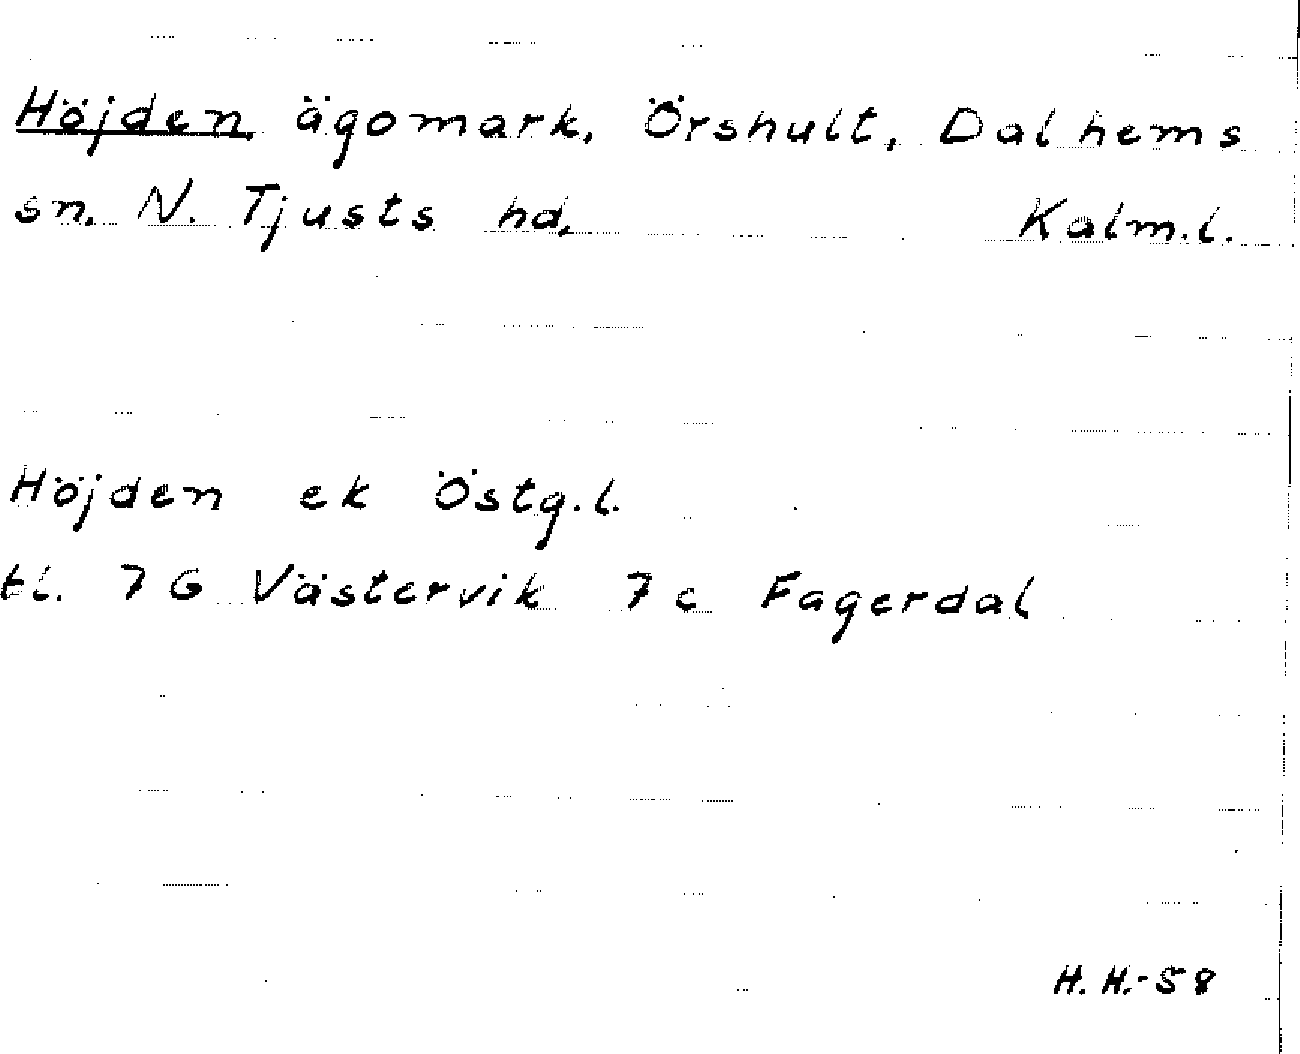 Höjden ägomark, Örshult, Dalhems
sn. N. Tjusts hd, Kalm.l.
Höjden ek Östg.l.
tl. 7G Västervik 7c Fagerdal
H.H.-58